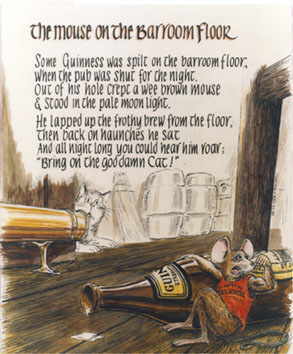 The Mouse on the Barroom Floor
Some Guinness was spilt on the barroom floor,
When the pub was shut for the night.
Out of his hole crept a wee brown mouse
& stood in the pale moon light.
He lapped up the frothy brew from the floor,
Then back on haunches he sat
And all night long you could hear him roar:
"Bring on the goddamn Cat!"